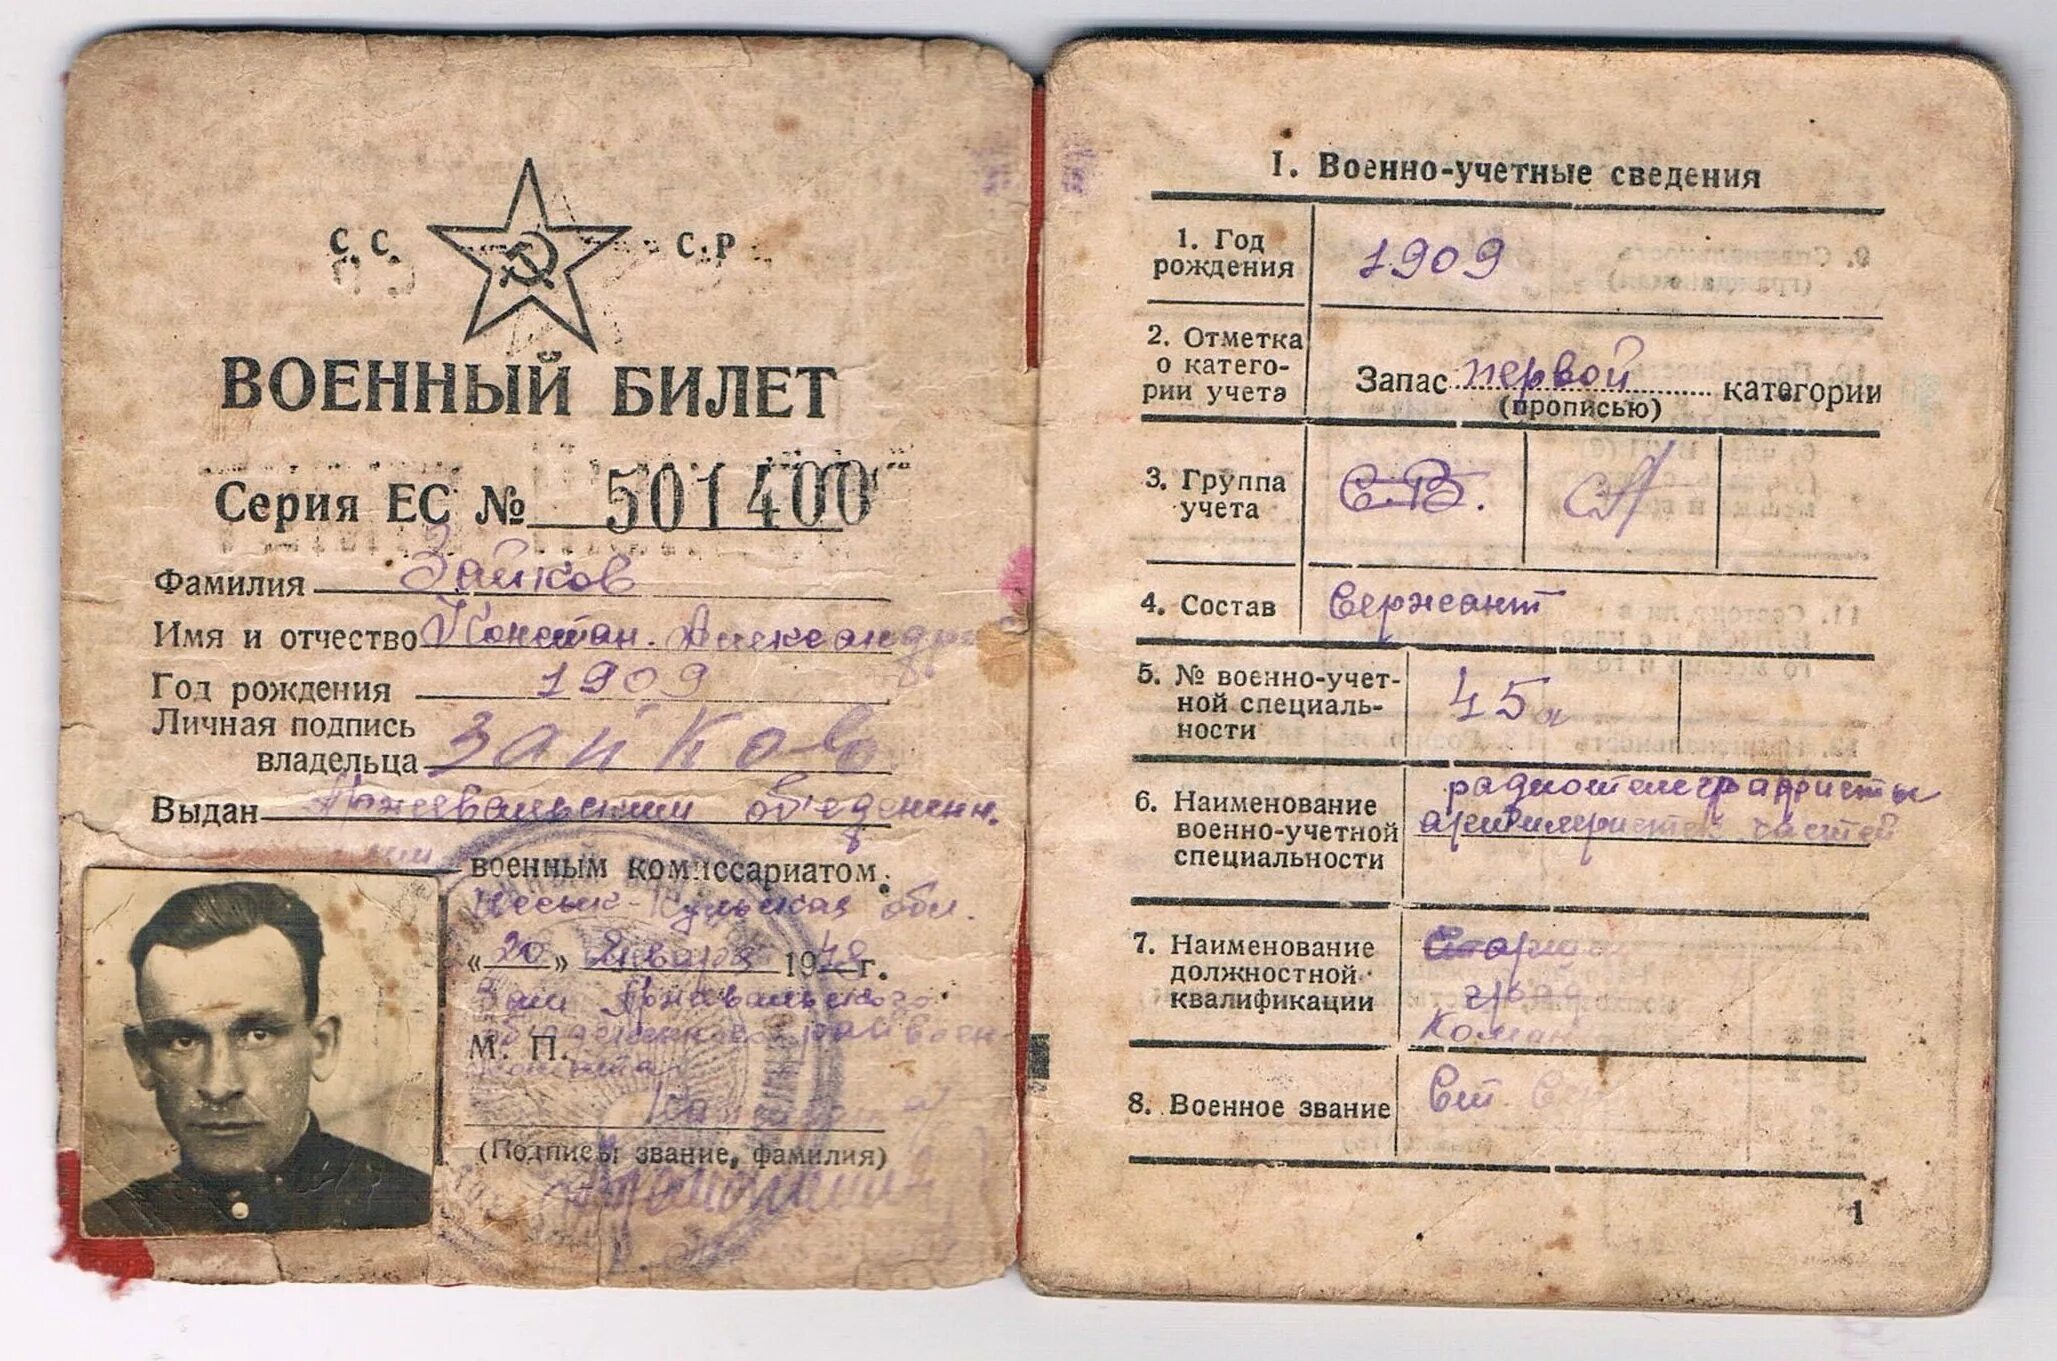 С.С. С.Р
ВОЕННЫЙ БИЛЕТ
Серия ЕС № 501400
Фамилия Зайков
Имя и отчество Констан. Александр
Год рождения 1909
Личная подпись
владельца Зайков
Выдан Пржевальским объеденен.
ным военным комиссариатом.
Иссык-Кульская обл.
«20» Января 1948 г.
Зам Пржевальского
объедененного райвоен-
М. П. комата
(Подпись, звание, фамилия)
I. Военно-учетные сведения
1. Год
рождения 1909
2. Отметка
о катего-
рии учета Запас первой категории
(прописью)
3. Группа
учета С.В. СА
4. Состав Сержант
5. № военно-учет-
ной специаль-
ности 45а
6. Наименование
военно-учетной
специальности
радиотелеграфисты
артиллеристск частей
7. Наименование
должностной
квалификации
8. Военное звание Ст. Сер
1